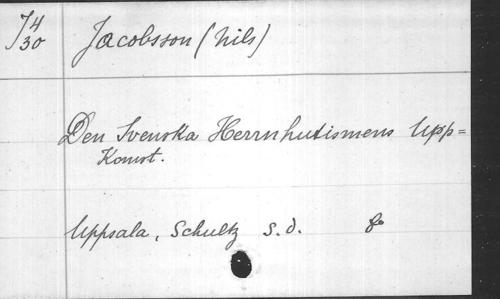 J 4/30 Jacobsson (Nils)
Den Svenska Herrnhutismens Upp=
Komst.
Uppsala, Schultz s.d. 8°